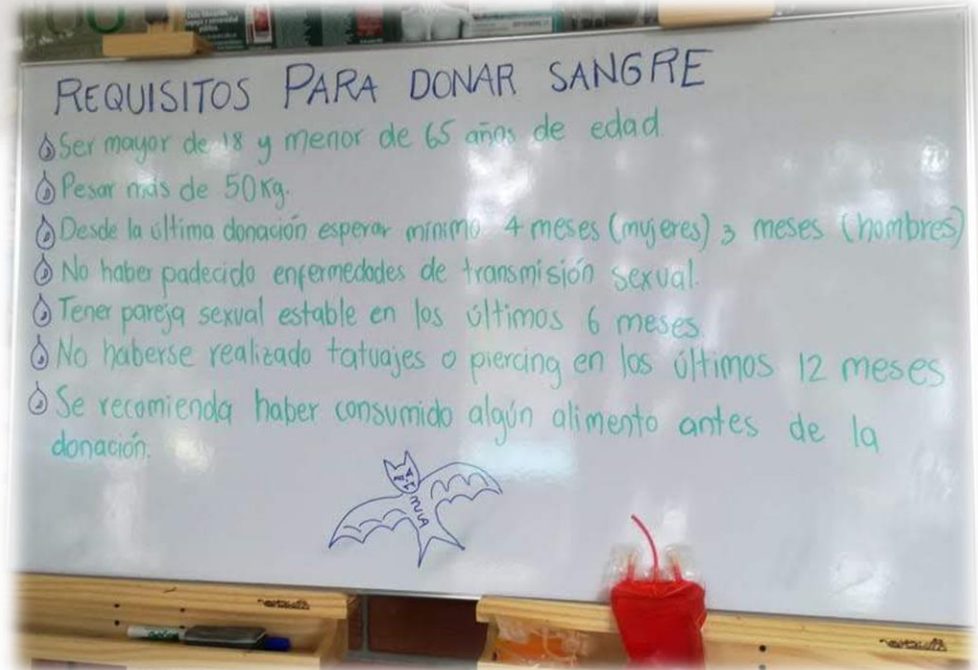 REQUISITOS PARA DONAR SANGRE
Ser mayor de 18 y menor de 65 años de edad
Pesar más de 50Kg.
Desde la última donación esperar mínimo 4 meses (mujeres) 3 meses (hombres)
No haber padecido enfermedades de transmisión sexual.
Tener pareja sexual estable en los últimos 6 meses.
No haberse realizado tatuajes o piercing en los últimos 12 meses
Se recomienda haber consumido algún alimento antes de la
donación.